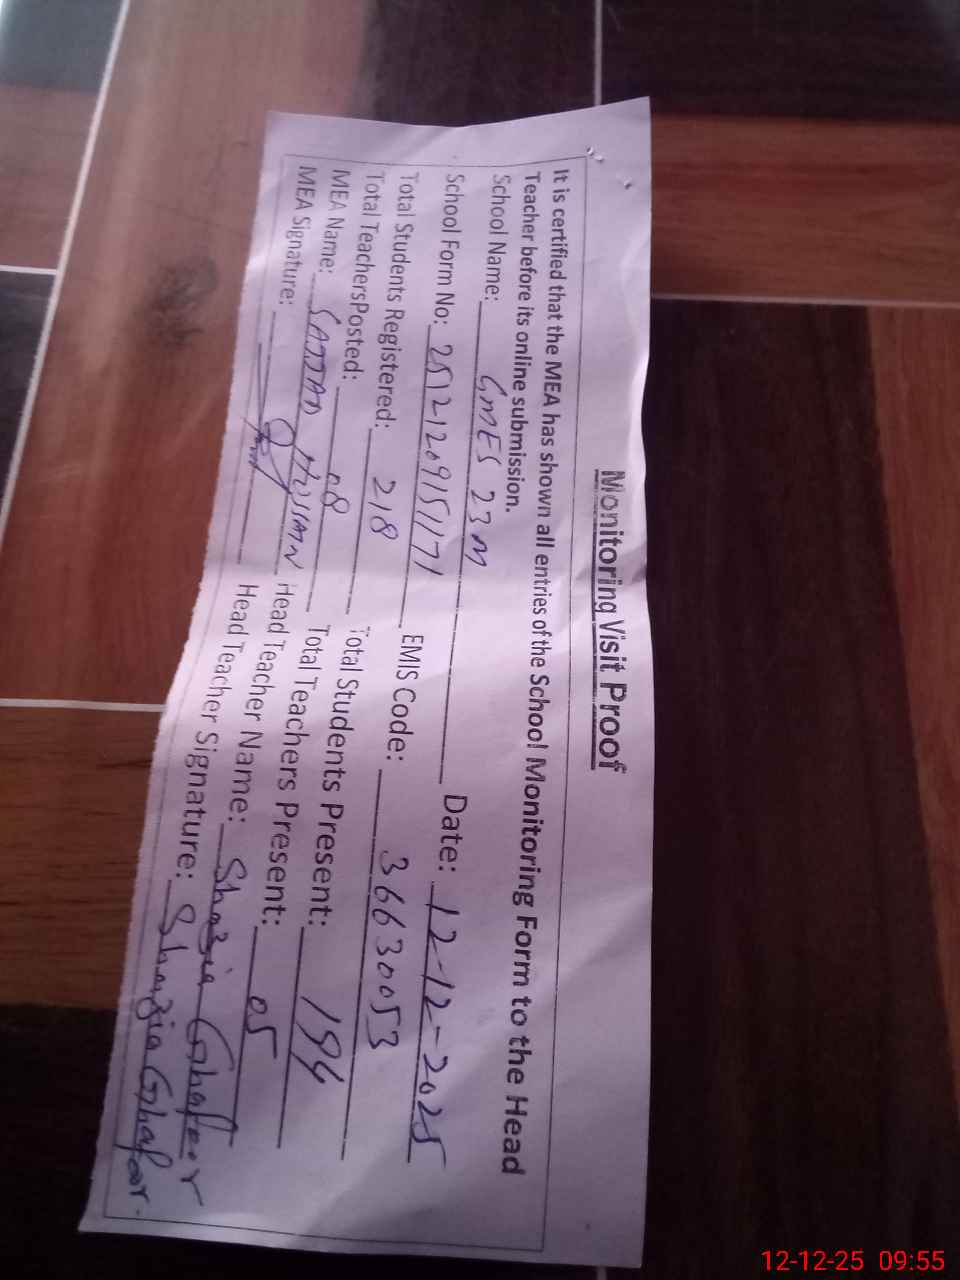 Monitoring Visit Proof
It is certified that the MEA has shown all entries of the School Monitoring Form to the Head
Teacher before its online submission.
School Name: GMES 23 M Date: 12-12-2025
School Form No: 25121209151171 EMIS Code: 36630053
Total Students Registered: 218 Total Students Present: 194
Total TeachersPosted: 08 Total Teachers Present: 05
MEA Name: SAJJAD HUSSAIN Head Teacher Name: Shazia Ghafoor
MEA Signature: Head Teacher Signature: Shazia Ghafoor.
12-12-25 09:55